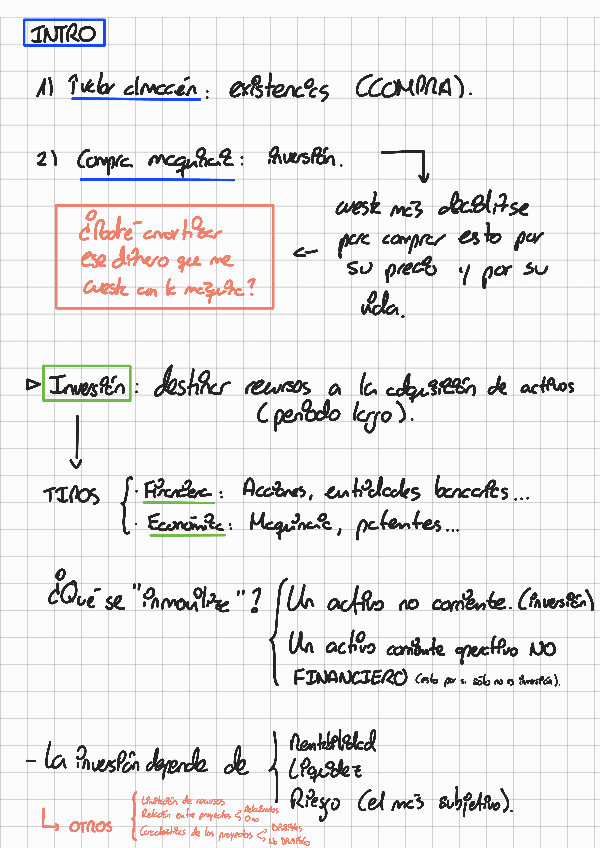 INTRO
1) llevar almacén: existencias (COMPRA).
2) Compra maquinaria: inversión.
cuesta más decidirse
para comprar esto por
su precio y por su
vida.
¿Podré amortizar
ese dinero que me
cuesta con la máquina?
Inversión: destinar recursos a la adquisición de activos
(período largo).
TIPOS
· Financiera: Acciones, entidades bancarias...
· Económica: Maquinaria, patentes...
¿Qué se "inmoviliza"?
Un activo no corriente. (inversión)
Un activo corriente operativo NO
FINANCIERO (esto por si sólo no es inversión).
- La inversión depende de
Rentabilidad
Liquidez
Riesgo (el más subjetivo).
OTROS
Limitación de recursos
Relación entre proyectos
Características de los proyectos
NO